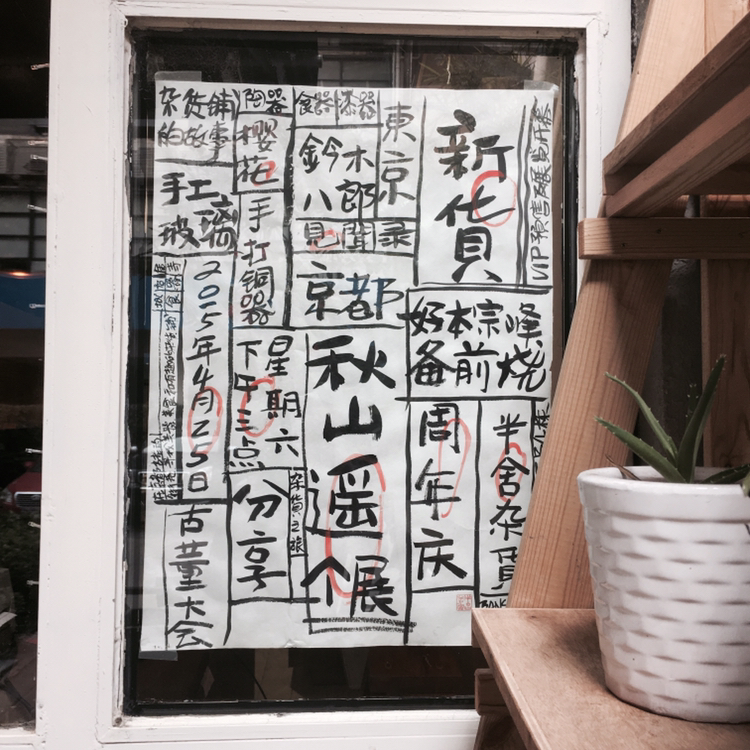 杂货铺
的故事
手工
玻璃
2015年4月25日
古董大会
陶器
樱花
手打铜器
星期六
下午三点
分享
杂货之旅
食器
漆器
東京
鈴木
八郎
見聞录
京都
秋山遥
个展
新貨
VIP预售
好本宗峰
备前烧
周年庆
半舍杂貨